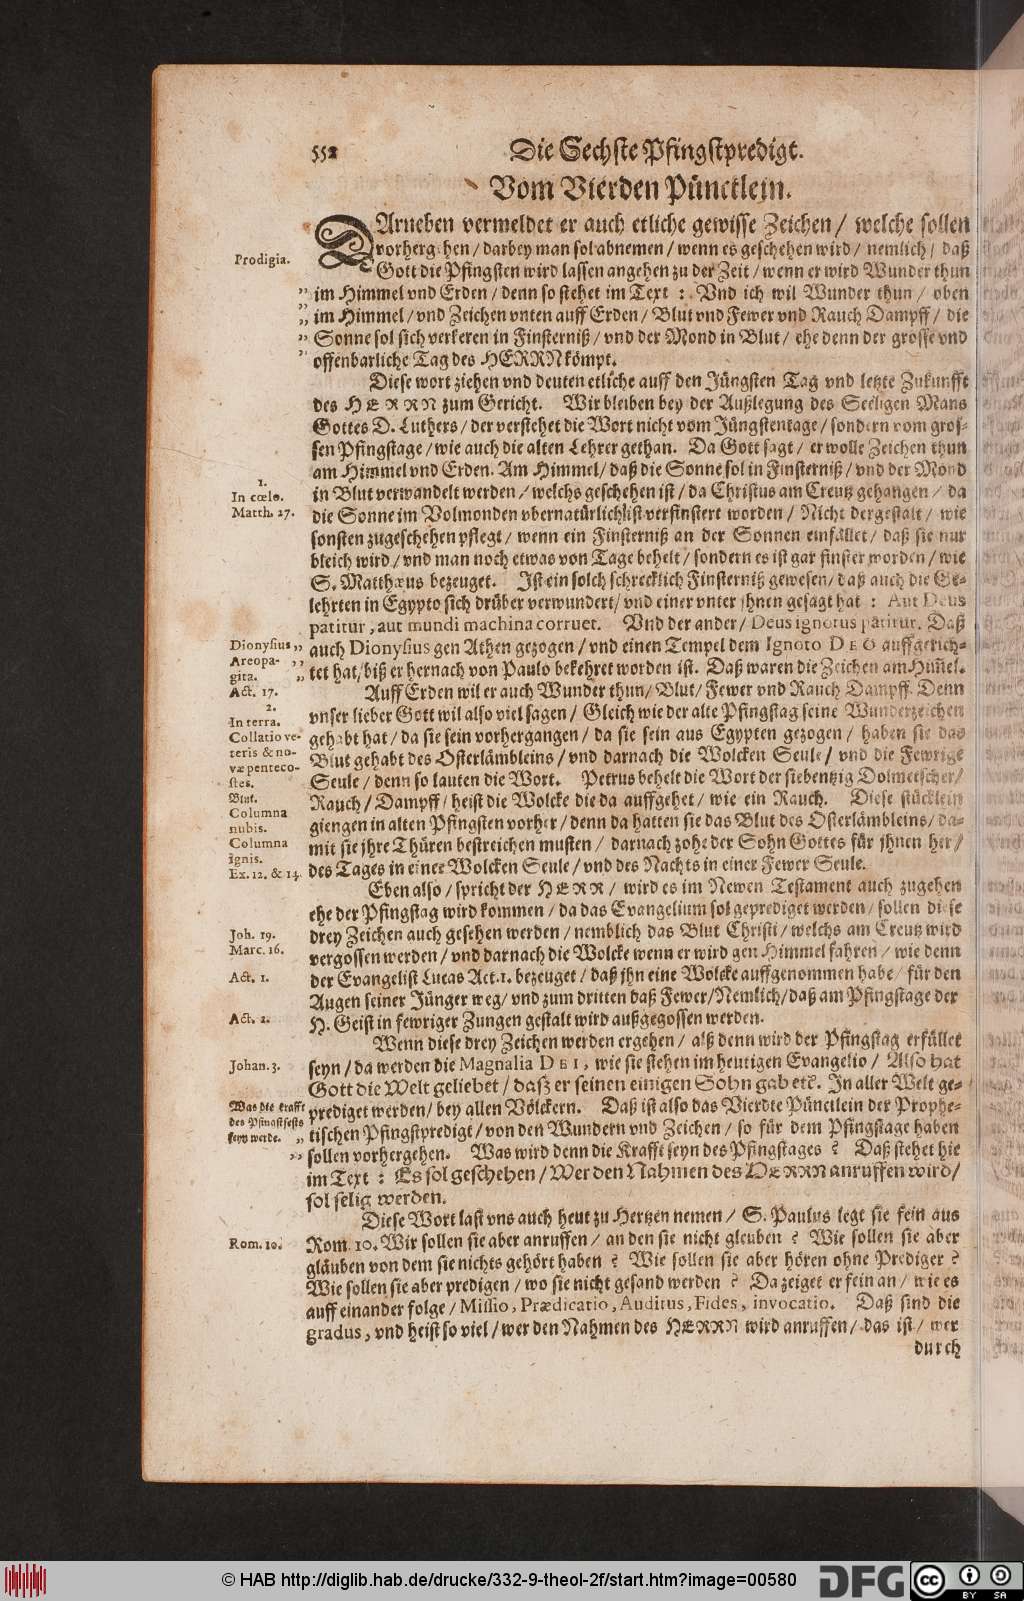 552
Die Sechste Pfingstpredigt.
Vom Vierden Pünctlein.
Prodigia.
DArneben vermeldet er auch etliche gewisse Zeichen / welche sollen
vorhergehen / darbey man sol abnemen / wenn es geschehen wird / nemlich / daß
Gott die Pfingsten wird lassen angehen zu der Zeit / wenn er wird Wunder thun
„ im Himmel vnd Erden / denn so stehet im Text : Vnd ich wil Wunder thun / oben
„ im Himmel / vnd Zeichen vnten auff Erden / Blut vnd Fewer vnd Rauch Dampff / die
„ Sonne sol sich verkeren in Finsterniß / vnd der Mond in Blut / ehe denn der grosse vnd
„ offenbarliche Tag des HERRN kömpt.
Diese wort ziehen vnd deuten etliche auff den Jüngsten Tag vnd letzte Zukunfft
des HERRN zum Gericht. Wir bleiben bey der Außlegung des Seeligen Mans
Gottes D. Luthers / der verstehet die Wort nicht vom Jüngstentage / sondern vom gros-
sen Pfingstage / wie auch die alten Lehrer gethan. Da Gott sagt / er wolle Zeichen thun
am Himmel vnd Erden. Am Himmel / daß die Sonne sol in Finsterniß / vnd der Mond
1.
In cœlo.
Matth. 27.
in Blut verwandelt werden / welchs geschehen ist / da Christus am Creutz gehangen / da
die Sonne im Volmonden vbernatürlich ist verfinstert worden / Nicht dergestalt / wie
sonsten zugeschehen pflegt / wenn ein Finsterniß an der Sonnen einfället / daß sie nur
bleich wird / vnd man noch etwas von Tage behelt / sondern es ist gar finster worden / wie
S. Matthæus bezeuget. Ist ein solch schrecklich Finsterniß gewesen / daß auch die Ge-
lehrten in Egypto sich drüber verwundert / vnd einer vnter jhnen gesagt hat : Aut Deus
patitur, aut mundi machina corruet. Vnd der ander / Deus ignotus patitur. Daß
Dionysius „
Areopa- „
gita. „
Act. 17.
auch Dionysius gen Athen gezogen / vnd einen Tempel dem Ignoto DEO auffgerich-
tet hat / biß er hernach von Paulo bekehret worden ist. Daß waren die Zeichen am Him̄el.
Auff Erden wil er auch Wunder thun / Blut / Fewer vnd Rauch Dampff. Denn
2.
In terra.
Collatio ve-
teris & no-
væ penteco-
stes.
Blut.
Columna
nubis.
Columna
ignis.
Ex. 12. & 14.
vnser lieber Gott wil also viel sagen / Gleich wie der alte Pfingstag seine Wunderzeichen
gehabt hat / da sie sein vorhergangen / da sie sein aus Egypten gezogen / haben sie das
Blut gehabt des Osterlämbleins / vnd darnach die Wolcken Seule / vnd die Fewrige
Seule / denn so lauten die Wort. Petrus behelt die Wort der siebentzig Dolmetscher /
Rauch / Dampff / heist die Wolcke die da auffgehet / wie ein Rauch. Diese stücklein
giengen in alten Pfingsten vorher / denn da hatten sie das Blut des Osterlämbleins / da-
mit sie jhre Thüren bestreichen musten / darnach zohe der Sohn Gottes für jhnen her /
des Tages in einer Wolcken Seule / vnd des Nachts in einer Fewer Seule.
Eben also / spricht der HERR / wird es im Newen Testament auch zugehen
ehe der Pfingstag wird kommen / da das Evangelium sol geprediget werden / sollen diese
Joh. 19.
Marc. 16.
drey Zeichen auch gesehen werden / nemblich das Blut Christi / welchs am Creutz wird
vergossen werden / vnd darnach die Wolcke wenn er wird gen Himmel fahren / wie denn
Act. 1.
der Evangelist Lucas Act. 1. bezeuget / daß jhn eine Wolcke auffgenommen habe / für den
Augen seiner Jünger weg / vnd zum dritten daß Fewer / Nemlich / daß am Pfingstage der
Act. 2.
H. Geist in fewriger Zungen gestalt wird außgegossen werden.
Wenn diese drey Zeichen werden ergehen / alß denn wird der Pfingstag erfüllet
Johan. 3.
seyn / da werden die Magnalia DEI, wie sie stehen im heutigen Evangelio / Also hat
Gott die Welt geliebet / daß er seinen einigen Sohn gab etc. In aller Welt ge-
Was die krafft
des Pfingstfests
seyn werde. „
„
prediget werden / bey allen Völckern. Daß ist also das Vierdte Pünctlein der Prophe-
tischen Pfingstpredigt / von den Wundern vnd Zeichen / so für dem Pfingstage haben
sollen vorhergehen. Was wird denn die Krafft seyn des Pfingstages ? Daß stehet hie
im Text : Es sol geschehen / Wer den Nahmen des HERRN anruffen wird /
sol selig werden.
Diese Wort last vns auch heut zu Hertzen nemen / S. Paulus legt sie fein aus
Rom. 10.
Rom. 10. Wir sollen sie aber anruffen / an den sie nicht gleuben ? Wie sollen sie aber
gläuben von dem sie nichts gehört haben ? Wie sollen sie aber hören ohne Prediger ?
Wie sollen sie aber predigen / wo sie nicht gesand werden ? Da zeiget er fein an / wie es
auff einander folge / Missio, Prædicatio, Auditus, Fides, invocatio. Daß sind die
gradus, vnd heist so viel / wer den Nahmen des HERRN wird anruffen / das ist / wer
durch
© HAB http://diglib.hab.de/drucke/332-9-theol-2f/start.htm?image=00580
DFG
cc BY SA